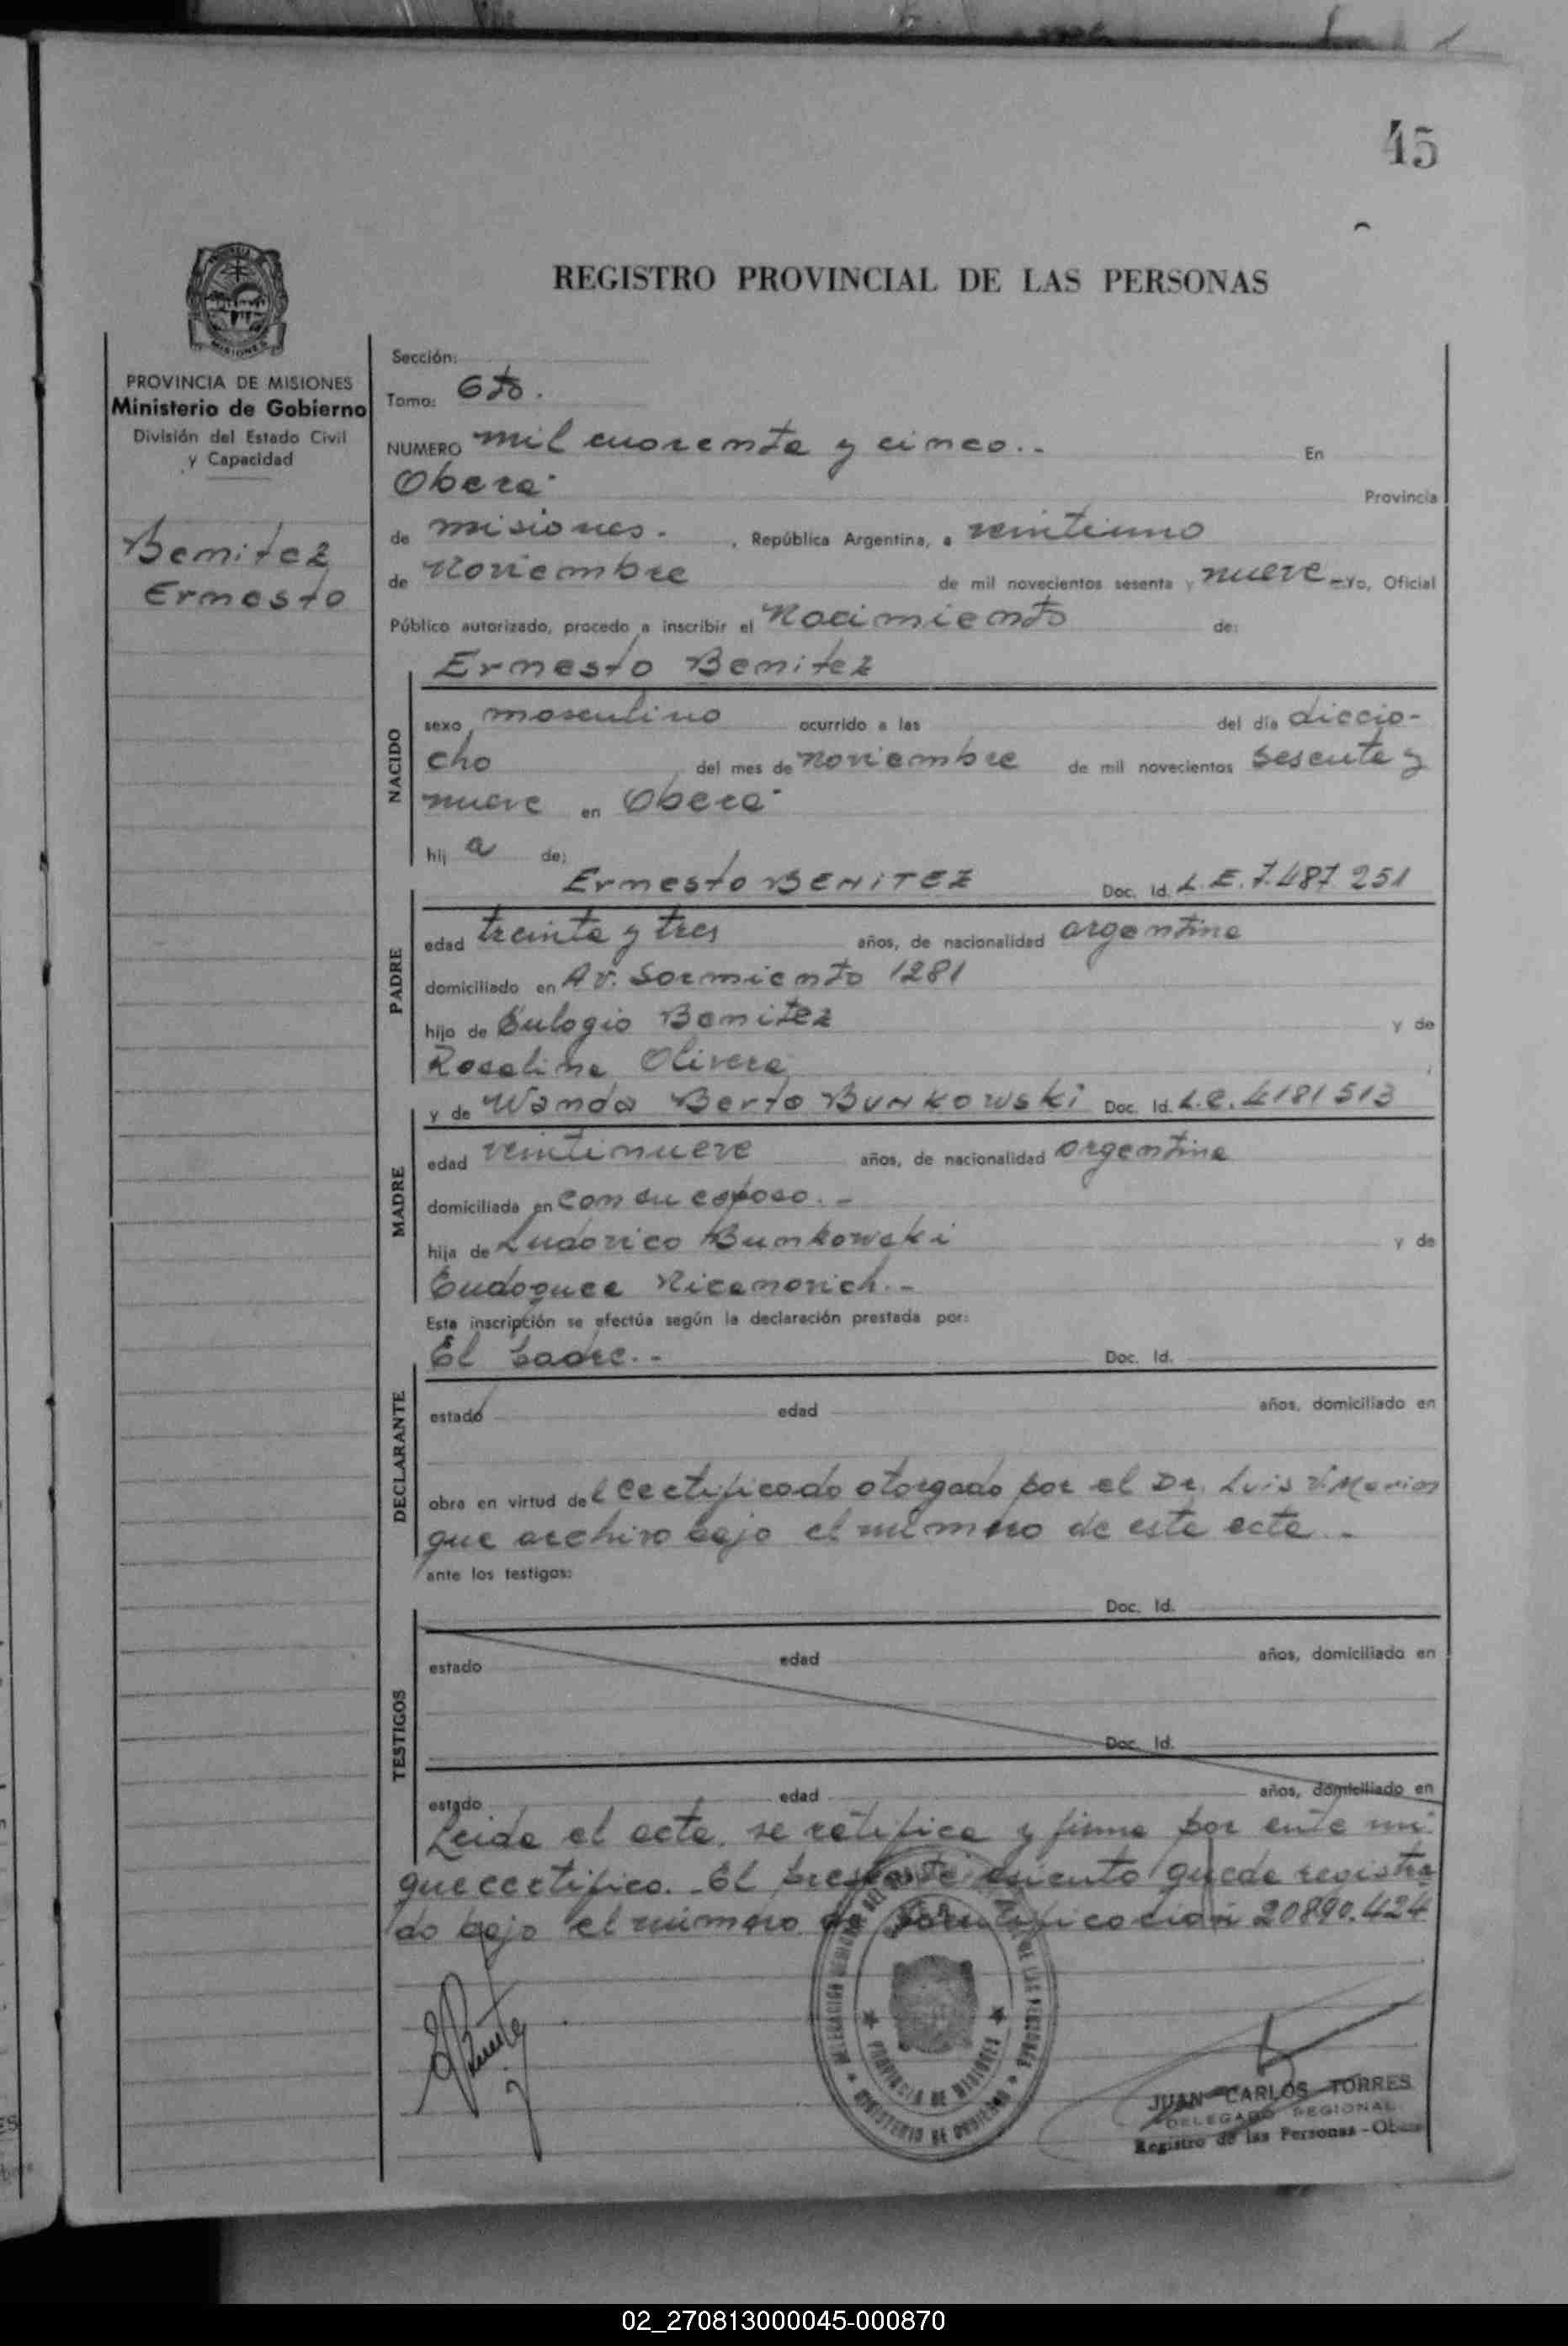 45
REGISTRO PROVINCIAL DE LAS PERSONAS
PROVINCIA DE MISIONES
Ministerio de Gobierno
División del Estado Civil
y Capacidad
Benitez
Ernesto
Sección:
Tomo: 6to.
NUMERO mil cuarenta y cinco.. En
Oberá Provincia
de misiones. , República Argentina, a veintiuno
de noviembre de mil novecientos sesenta y nueve Yo, Oficial
Público autorizado, procedo a inscribir el Nacimiento de:
Ernesto Benitez
NACIDO
sexo masculino ocurrido a las del día diecio-
cho del mes de noviembre de mil novecientos sesenta y
nueve en Oberá
hij a de:
Ernesto BENITEZ Doc. Id. L.E. 7.487 251
PADRE
edad treinta y tres años, de nacionalidad argentina
domiciliado en Av. Sarmiento 1281
hijo de Eulogio Benitez y de
Rosalina Olivera
y de Wanda Berta BUNKOWSKi Doc. Id. L.C. 4181513
MADRE
edad veintinueve años, de nacionalidad argentina
domiciliada en con su esposo. -
hija de Ludovico Bunkowski y de
Nicanovich. -
Esta inscripción se efectúa según la declaración prestada por:
El padre. - Doc. Id.
DECLARANTE
estado edad años, domiciliado en
obra en virtud de l certificado otorgado por el Dr. Luis V.
que archivo bajo el número de este acta -
ante los testigos:
Doc. Id.
TESTIGOS
estado edad años, domiciliado en
Doc. Id.
estado edad años, domiciliado en
Leida el acta, se ratifica y firma por ante mi
que certifico. - El presente asiento queda registra
do bajo el número de Identificación 20890.424
PROVINCIA DE MISIONES
MINISTERIO DE GOBIERNO
JUAN CARLOS TORRES
DELEGADO REGIONAL
Registro de las Personas - Oberá
02_270813000045-000870